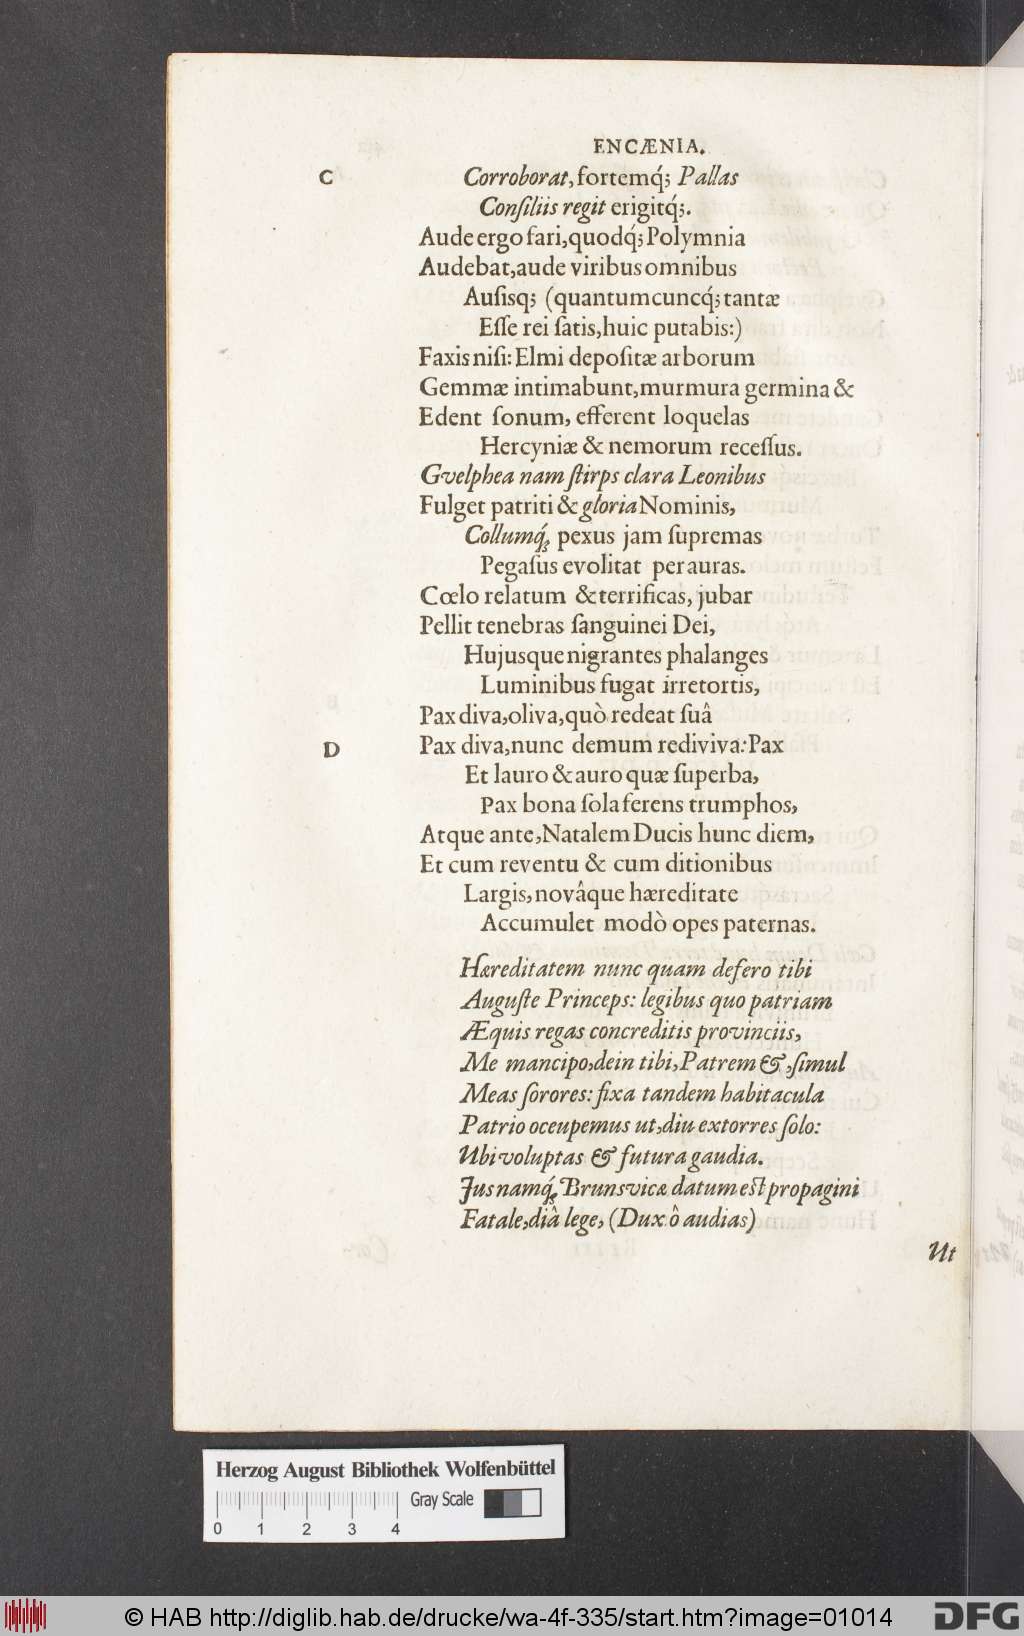 ENCÆNIA.
C Corroborat, fortemq́; Pallas
Conſiliis regit erigitq́;.
Aude ergo fari, quodq́; Polymnia
Audebat, aude viribus omnibus
Auſisq; (quantumcuncq́; tantæ
Eſſe rei ſatis, huic putabis:)
Faxis niſi: Elmi depoſitæ arborum
Gemmæ intimabunt, murmura germina &
Edent ſonum, efferent loquelas
Hercyniæ & nemorum receſſus.
Gvelphea nam ſtirps clara Leonibus
Fulget patriti & gloria Nominis,
Collumq́; pexus jam ſupremas
Pegaſus evolitat per auras.
Cœlo relatum & terrificas, jubar
Pellit tenebras ſanguinei Dei,
Hujusque nigrantes phalanges
Luminibus fugat irretortis,
Pax diva, oliva, quò redeat ſuâ
D Pax diva, nunc demum rediviva: Pax
Et lauro & auro quæ ſuperba,
Pax bona ſola ferens trumphos,
Atque ante, Natalem Ducis hunc diem,
Et cum reventu & cum ditionibus
Largis, novâque hæreditate
Accumulet modò opes paternas.
Hæreditatem nunc quam defero tibi
Auguſte Princeps: legibus quo patriam
Æquis regas concreditis provinciis,
Me mancipo, dein tibi, Patrem &, ſimul
Meas ſorores: fixa tandem habitacula
Patrio oceupemus ut, diu extorres ſolo:
Ubi voluptas & futura gaudia.
Jus namq́; Brunsvicæ datum eſt propagini
Fatale, diâ lege, (Dux ô audias)
Ut
Herzog August Bibliothek Wolfenbüttel
Gray Scale
0 1 2 3 4
© HAB http://diglib.hab.de/drucke/wa-4f-335/start.htm?image=01014
DFG